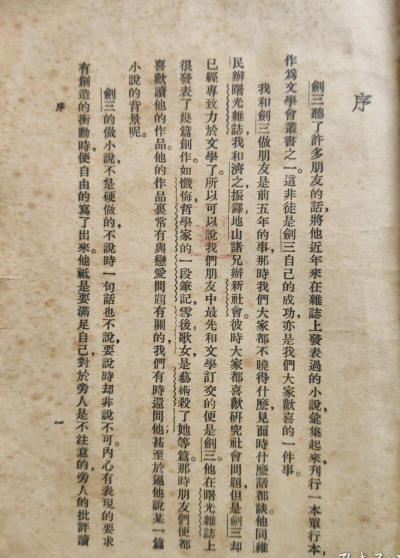 序
劍三聽了許多朋友的話，將他近年來在雜誌上發表過的小說，彙集起來刊行一本單行本，
作爲文學會叢書之一。這非徒是劍三自己的成功，亦是我們大家歡喜的一件事。
我和劍三做朋友是前五年的事，那時我們大家都不曉得什麼，見面時什麼話都談。他同維
民辦曙光雜誌，我和濟之振鐸地山諸兄辦新社會，彼時大家都喜歡研究社會問題，但是劍三却
已經專致力於文學了。所以可以說我們朋友中最先和文學訂交的便是劍三。他在曙光雜誌上
很發表了幾篇創作，如懺悔，哲學家的一段筆記，雪後，歌女，是藝術殺了她等篇，那時朋友們便都
喜歡讀他的作品。他的作品裏常有與戀愛問題有關的，我們有時還問他，甚至於逼他說某一篇
小說的背景呢。
劍三的做小說，不是硬做的，不說時一句話也不說，要說時却非說不可，內心有表現的要求，
有創造的衝動時便自由的寫了出來。他祇是要滿足自己，對於旁人是不注意的，旁人的批評讀
序
一